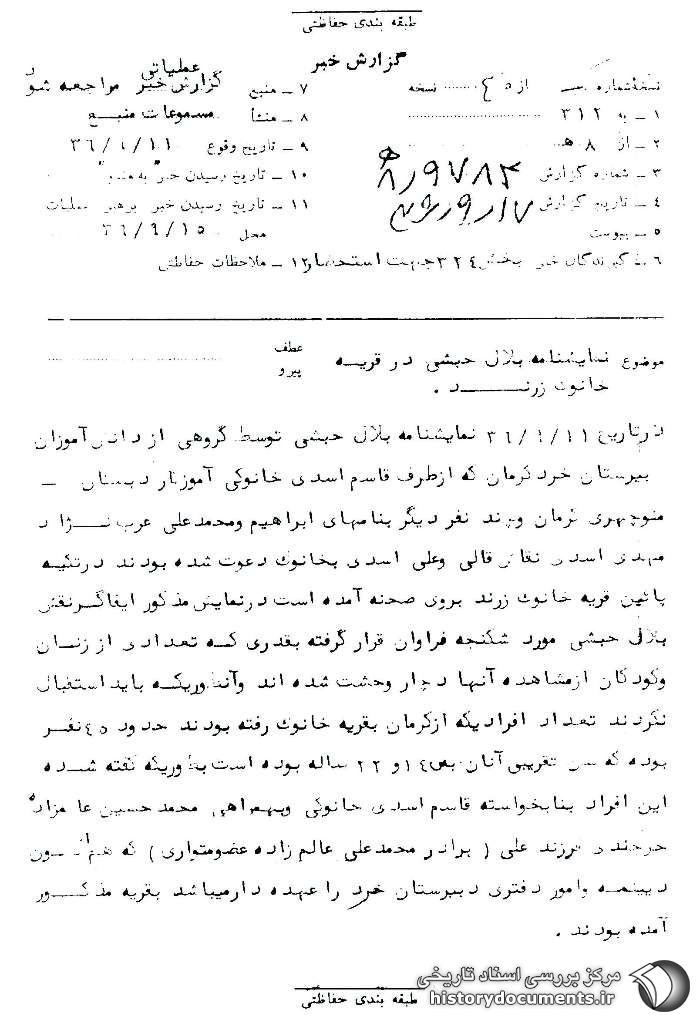 طبقه بندی حفاظتی
گزارش خبر
نسخهٔ شماره از نسخه
۱ ـ به ۳۱۲
۲ ـ از ۸ هـ
۳ ـ شماره گزارش ۹۷۸۳
۴ ـ تاریخ گزارش
۵ ـ پیوست
۶ ـ گیرندگان خبر بخش ۳۲۴ جهت استحضار
۷ ـ منبع عملیاتی گزارش خبر مراجعه شود
۸ ـ منشأ مسموعات منبع
۹ ـ تاریخ وقوع ۳۶/۹/۱۱
۱۰ ـ تاریخ رسیدن خبر به منبع
۱۱ ـ تاریخ رسیدن خبر برهبر عملیات
محل ۳۶/۹/۱۵
۱۲ ـ ملاحظات حفاظتی
موضوع نمایشنامه بلال حبشی در قریه
خانوک زرنـــد .
عطف
پیرو
در تاریخ ۳۶/۹/۱۱ نمایشنامه بلال حبشی توسط گروهی از دانش آموزان
دبیرستان خرد کرمان که ازطرف قاسم اسدی خانوکی آموزگار دبستان ـ
منوچهری کرمان و چند نفر دیگر بنامهای ابراهیم ومحمدعلی عرب نـژاد
مهدی اسدی نقاش قالی وعلی اسدی بخانوک دعوت شده بودند درتکیه
پائین قریه خانوک زرند بروی صحنه آمده است درنمایش مذکور ایفاگرنقش
بلال حبشی مورد شکنجه فراوان قرار گرفته بقدری کـه تعدادی از زنـان
وکودکان ازمشاهده آنها دچار وحشت شده اند وآنطوریکـه باید استقبال
نکردند تعداد افرادیکه ازکرمان بقریه خانوک رفته بودند حدود ۴۵ نفـر
بوده که سن تقریبی آنان بین ۱۴ و ۲۲ ساله بوده است بطوریکه گفته شـده
این افراد بنابخواسته قاسم اسدی خانوکی وبهمراهی محمدحسین عالمزاده
فرزند علی ( برادر محمدعلی عالم زاده عضومتواری ) که هم اکـنون
وامور دفتری دبیرستان خرد را عهده دارمیباشد بقریه مذکـــور
آمده بودند .
طبقه بندی حفاظتی
مرکز بررسی اسناد تاریخی
historydocuments.ir